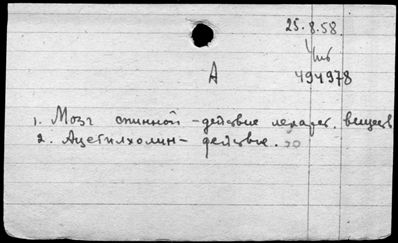 25.8.58.
А 494978
1. Мозг спинной - действие лекарст. веществ
2. Ацетилхолин - действие.